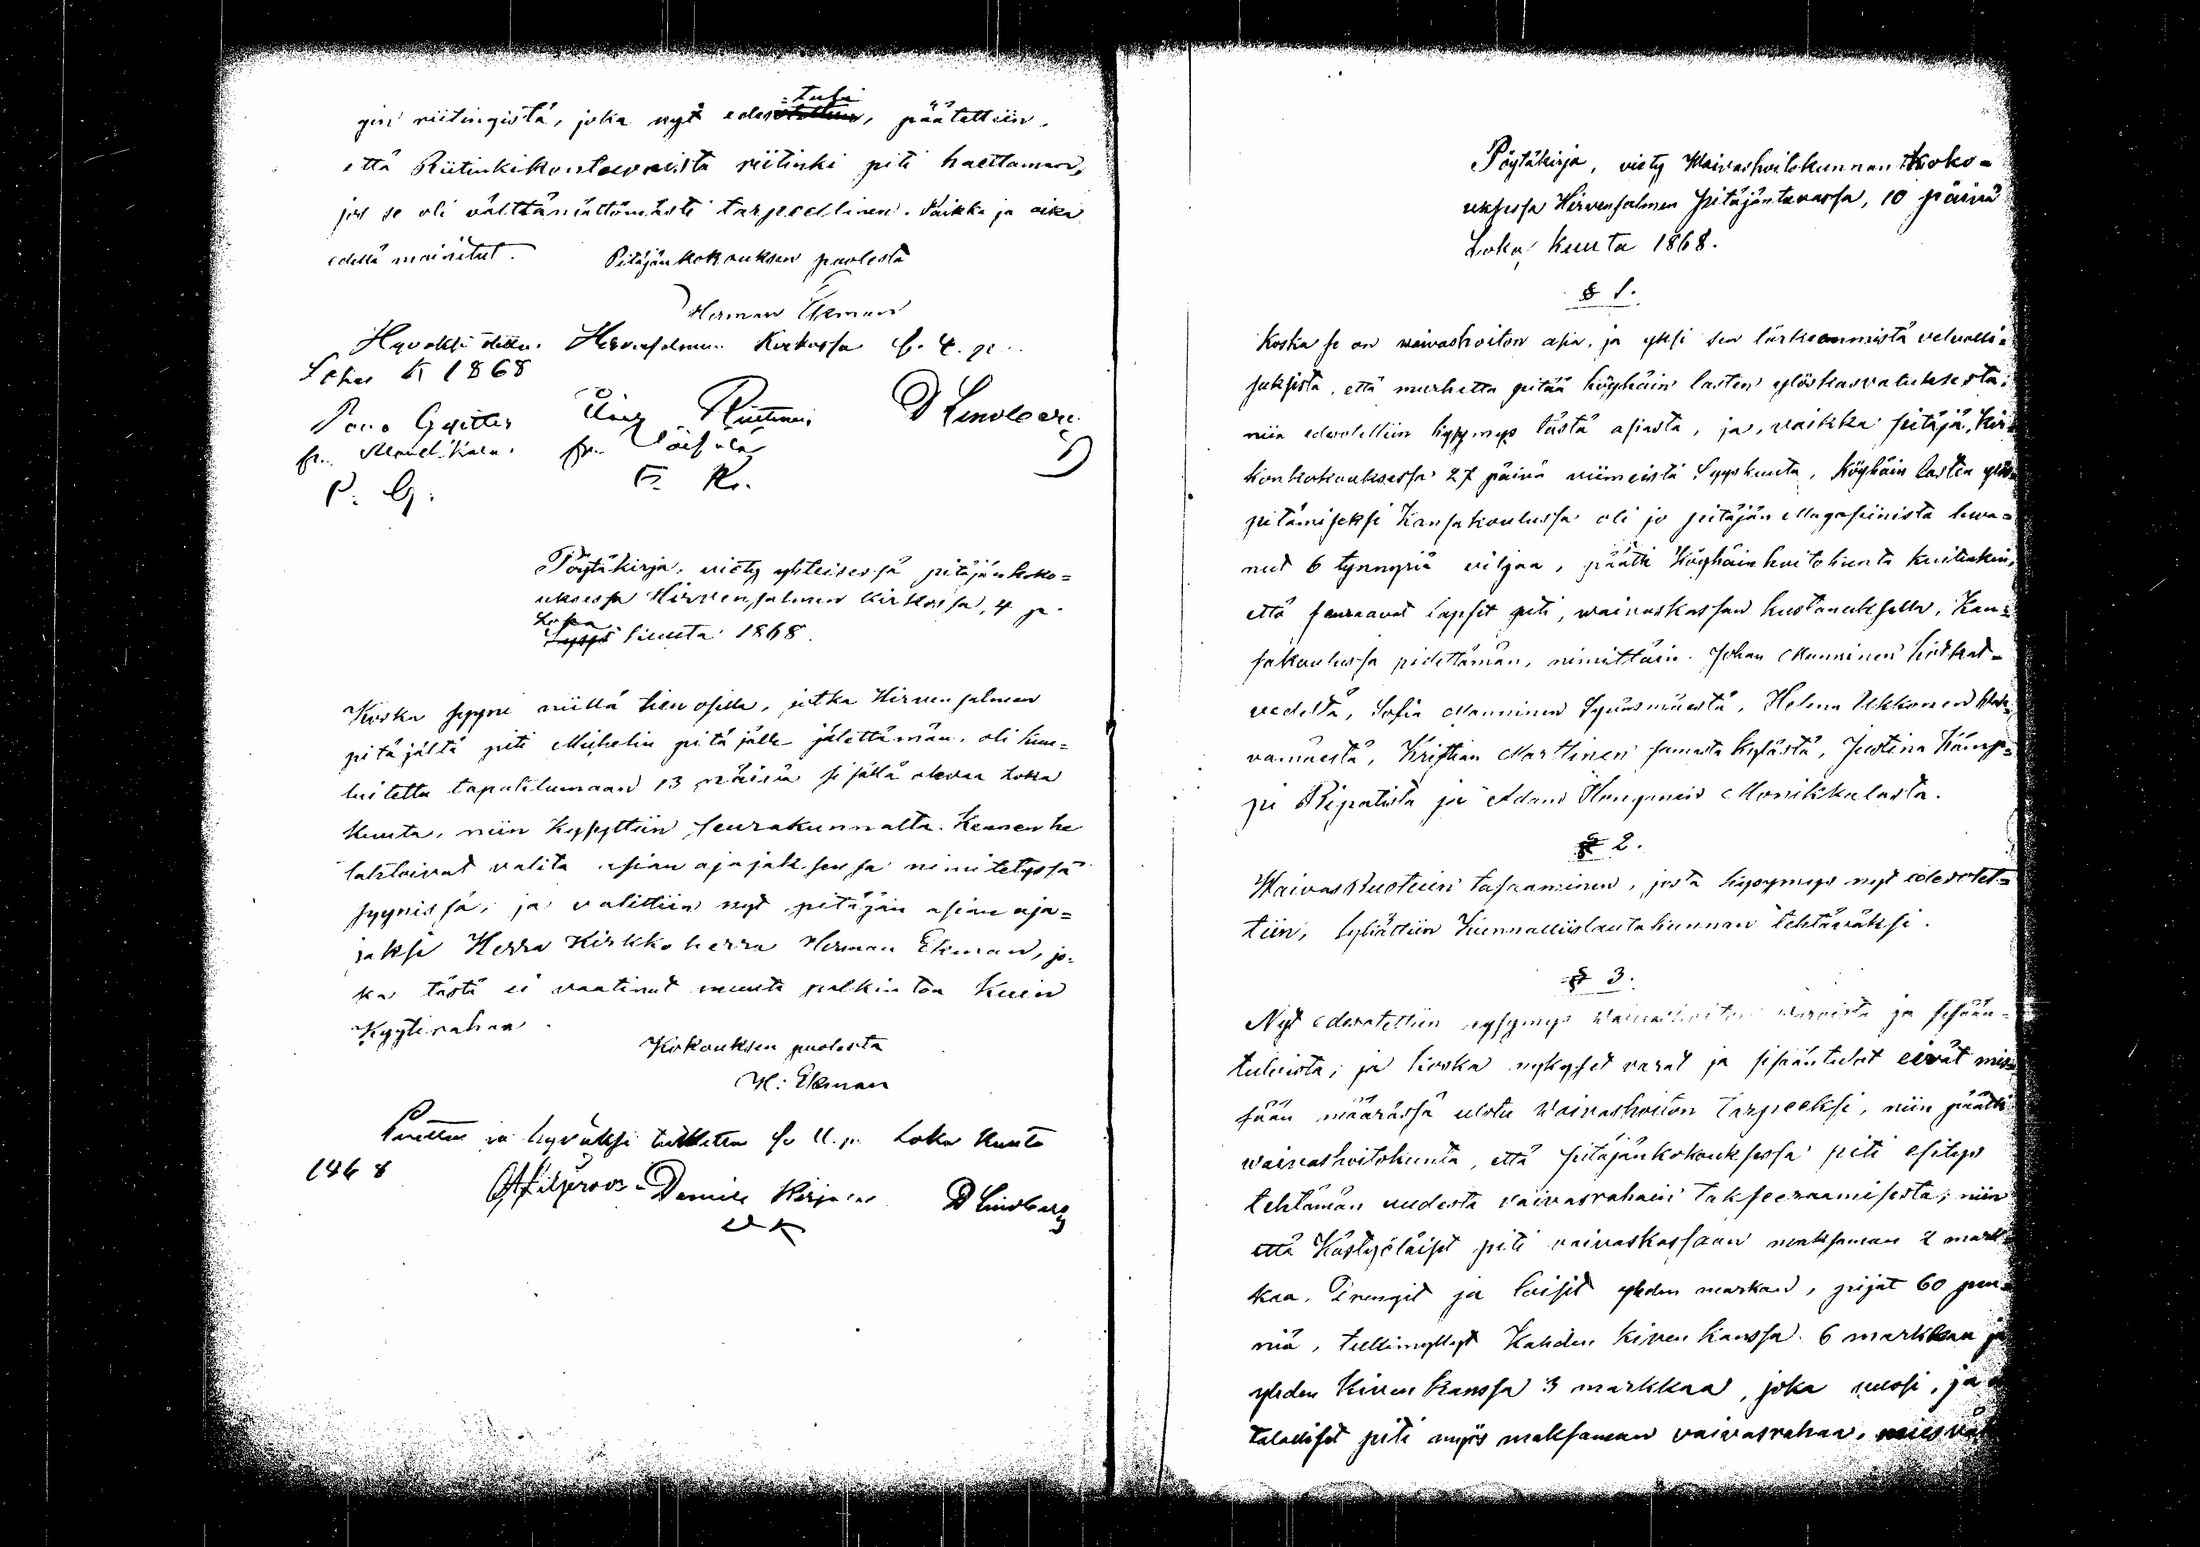 gin riitingistä, joka nyt edes =tusi päätettiin,
että Riitinkikontoorista riitinki piti haettaman,
jos se oli välttämättömästi tarpeellinen. Paikka ja aika
edellä mainitut. Pitäjänkokouksen puolesta
Herman Ekman
Hyväksi Hirvensalmen Kirkossa 4. p.
Loka K 1868
D Lindberg
P. G.
Pöytäkirja, viety yhteisessä pitäjänkoko=
uksessa Hirvensalmen Kirkossa, 4 p.
Loka
Kuuta 1868.
Koska syyni niillä tien osilla, jotka Hirvensalmen
pitäjältä piti Mikkelin pitäjälle jätettämän, oli kuu=
lutettu tapahtumaan 13 päivä sisällä olevaa Loka
Kuuta, niin kysyttiin seurakunnalta. Kenen he
tahtoivat valita asian ajajaksensa nimitetyssä
syynissä; ja valittiin nyt pitäjän asian aja=
jaksi Herra Kirkkoherra Herman Ekman, jo=
ka tästä ei vaatinut muuta palkintoa Kuin
Kyytirahan.
Kokouksen puolesta
H: Ekman
Luettu ja hyväksi tutkittu 11. p. Loka Kuuta
1868
D Lindberg
Pöytäkirja, viety Waivashoitokunnan Koko=
uksessa Hirvensalmen Pitäjäntuvassa, 10 päivä
Loka Kuuta 1868.
§ 1.
Koska se on waivashoiton asia, ja yksi sen tärkeimmistä velvolli=
suksista, että murhetta pitää köyhäin lasten ylöskasvatuksesta,
niin edesotettiin kysymys tästä asiasta, ja, vaikka pitäjä, Kir=
konkokouksessa 27 päivä viimeistä Syyskuuta, Köyhäin lasten ylös=
pitämiseksi Kansakoulussa oli jo pitäjän Magasiinista luva=
nut 6 tynnyriä viljaa, päätti Köyhäinhoitokunta kuitenkin,
että seuraavat lapset piti, waivaskassan kustanuksella, Kan=
sakoulussa pidettämän, nimittäin. Johan Manninen Kotkat=
vedeltä, Sofia Manninen Syväsmäestä, Helena Ukkonen
vamäestä, Kristian Marttinen samasta kylästä, Justina Kämp=
pi Ripatista ja Adam Monikkalasta.
§ 2.
Waivas Ruotuin tasaaminen, josta kysymys nyt edesotet=
tiin, lykättiin Kunnallislautakunnan tehtäväksi.
§ 3.
Nyt edesotettiin kysymys Waivashoiton varoista ja sisään=
tuloista; ja koska nykyset varat ja sisääntulot eivät mis=
sään määrässä ulotu Waivashoiton tarpeeksi, niin päätti
waivashoitokunta, että pitäjänkokouksessa piti esitys
tehtämän uudesta vaivasrahain takseeraamisesta; niin
että Käsityöläiset piti vaivaskassaan maksaman 2 mark=
kaa, Trengit ja loisit yhden markan, piijat 60 pen=
niä, tullimyllyt Kahden kiven kanssa 6 markkaa ja
yhden kiven kanssa 3 markkaa, joka vuosi, ja
talolliset piti myös maksaman vaivasrahaa,